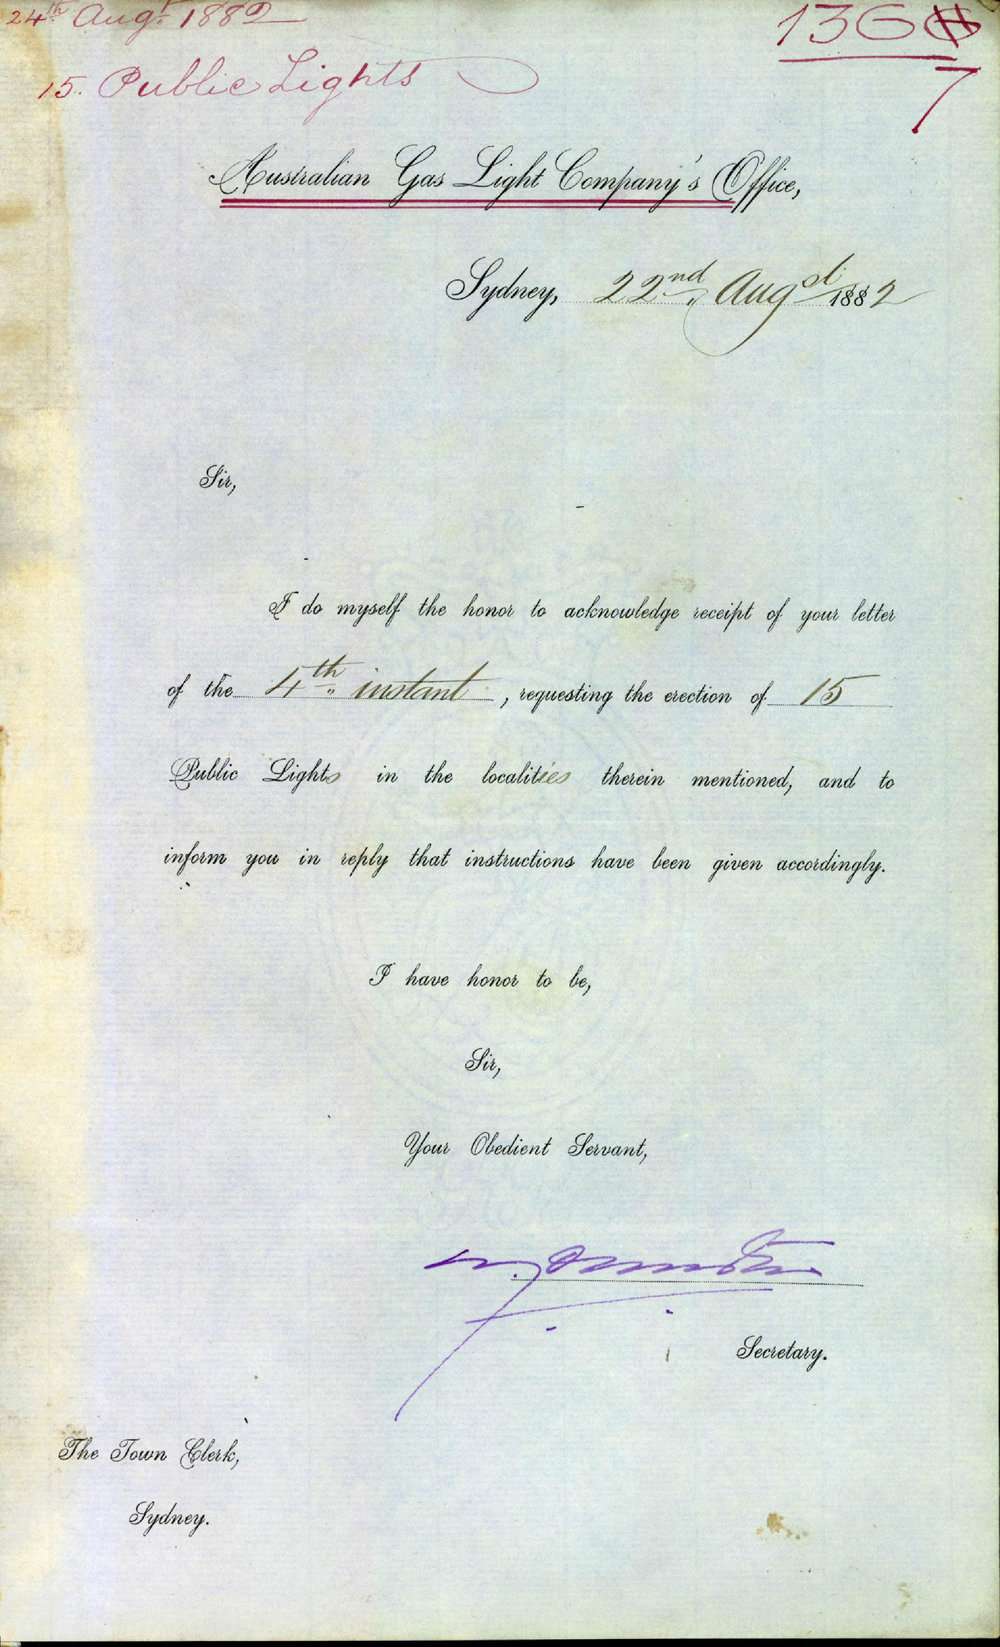 24th Augt. 1882
15. Public Lights
136
7
Australian Gas Light Company's Office,
Sydney, 22nd Augst 1882
Sir,
I do myself the honor to acknowledge receipt of your letter
of the 4th instant, requesting the erection of 15
Public Lights in the localities therein mentioned, and to
inform you in reply that instructions have been given accordingly.
I have honor to be,
Sir,
Your Obedient Servant,
Secretary.
The Town Clerk,
Sydney.